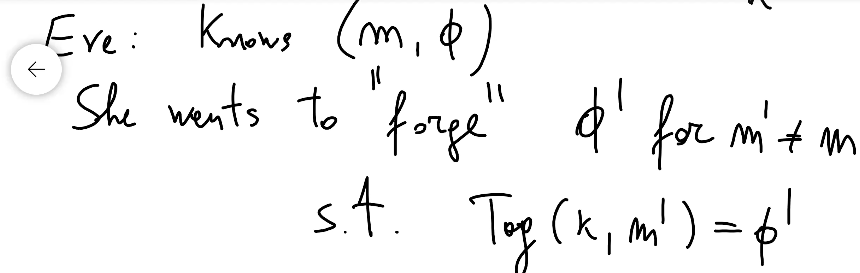 Eve: Knows (m, ϕ)
She wents to "forge" ϕ' for m' ≠ m
s.t. Tag (k, m') = ϕ'